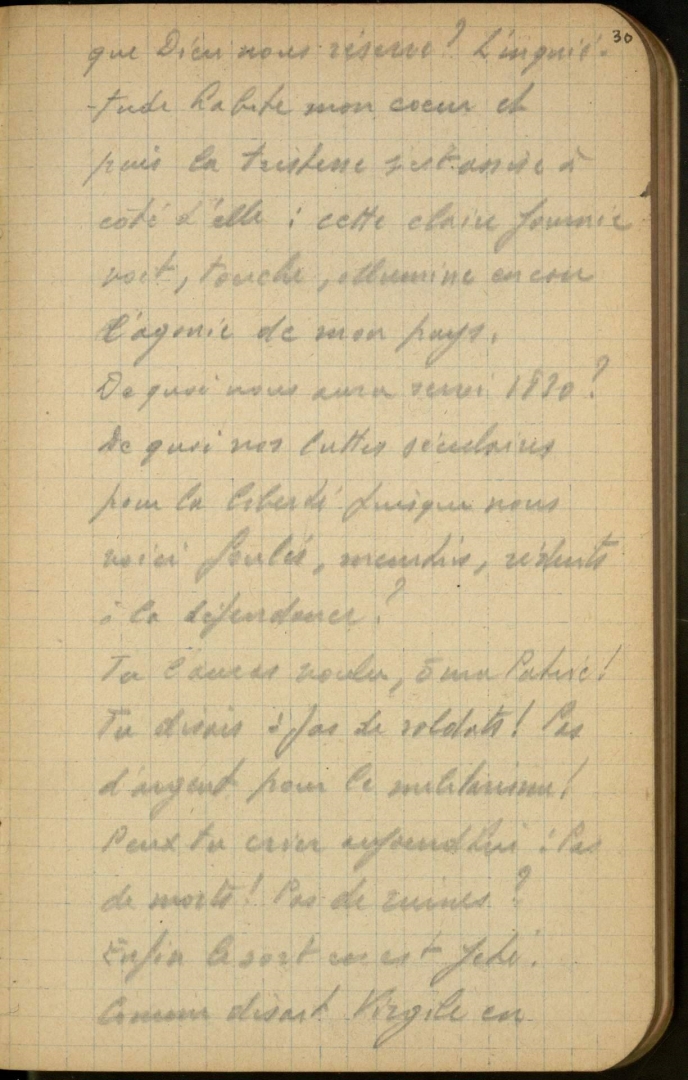 30
que Dieu nous réserve? L'inquié-
-tude habite mon coeur et
puis la tristesse s'est assise à
côté d'elle : cette claire journée
voit, touche, illumine encore
l'agonie de mon pays.
De quoi nous aura servi 1830?
De quoi nos luttes séculaires
pour la liberté puisque nous
voici foulés, meurtris, réduits
à la dépendance?
Tu l'auras voulu, ô ma Patrie!
Tu disais : pas de soldats! Pas
d'argent pour le militarisme!
Peux tu crier aujourd'hui : Pas
de morts! Pas de ruines?
Enfin le sort en est jeté.
Comme disait Virgile en